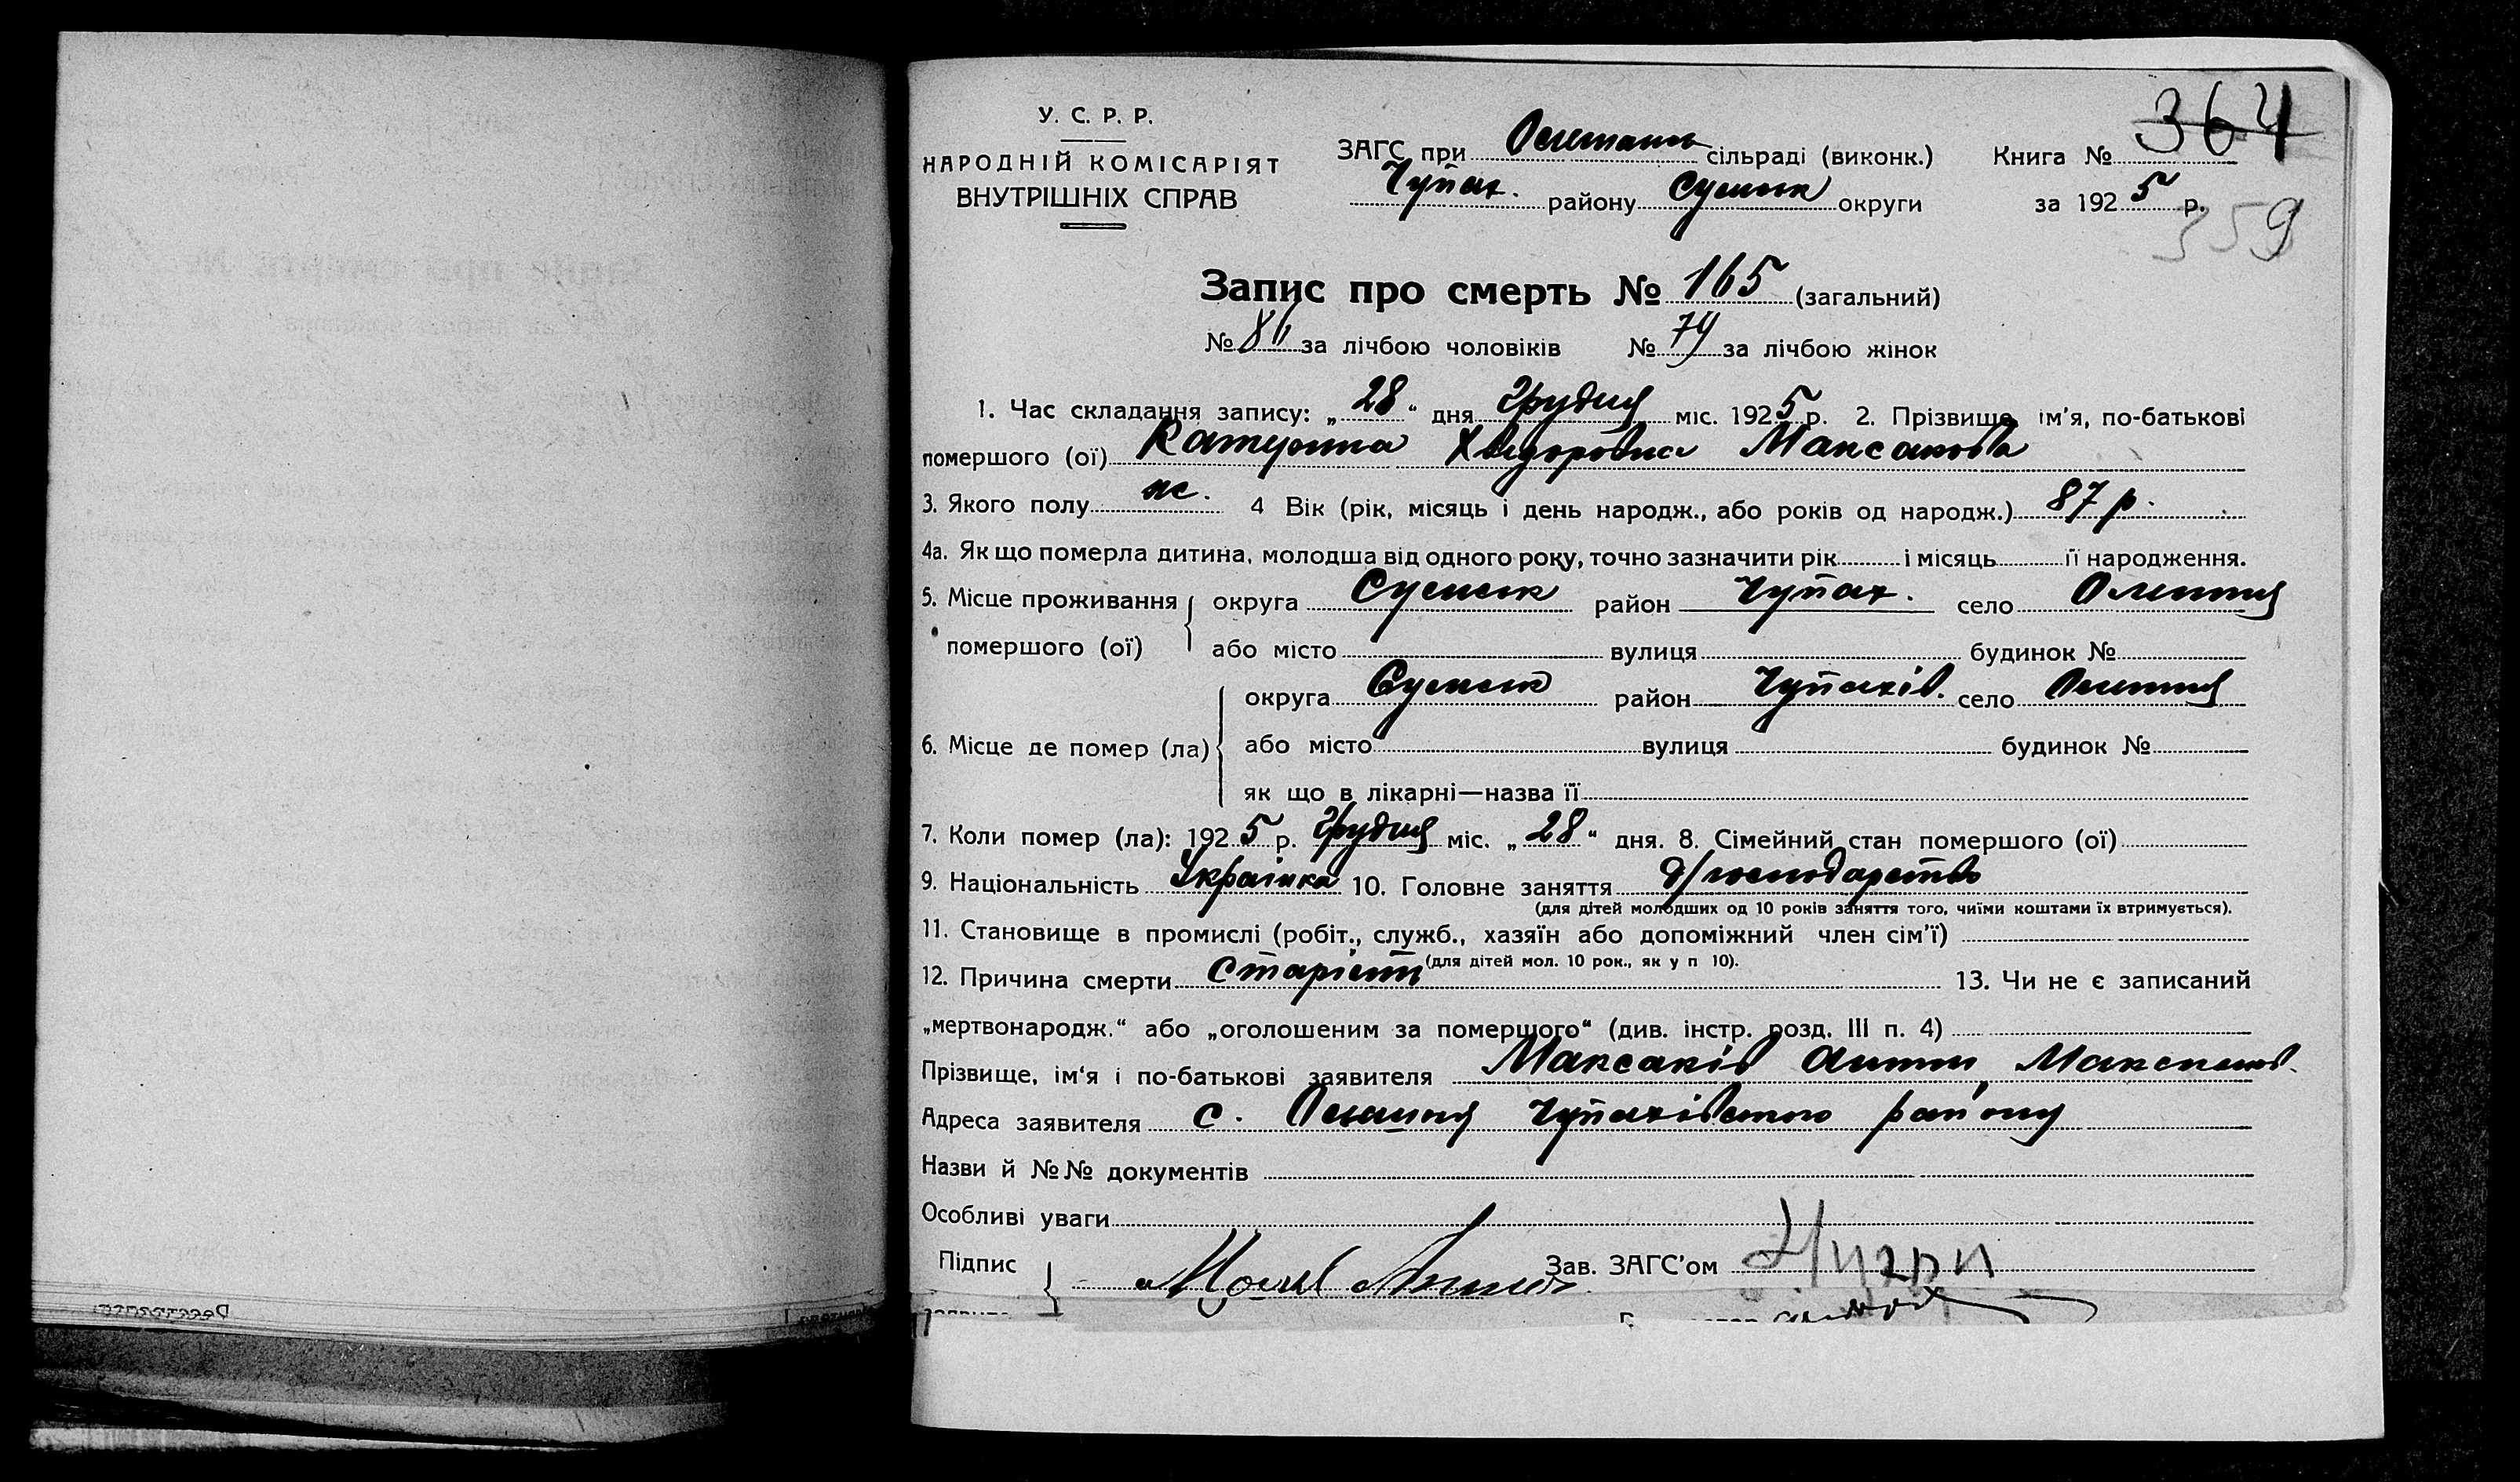 У. С. Р. Р.
НАРОДНІЙ КОМІСАРІЯТ
ВНУТРІШНІХ СПРАВ
ЗАГС при сільраді (виконк.) Книга № 364
Чупах. району Сумськ округи за 1925 р.
359
Запис про смерть № 165 (загальний)
№ 86 за лічбою чоловіків № 79 за лічбою жінок
1. Час складання запису: „28" дня Грудня міс. 1925 р. 2. Прізвище, ім'я, по-батькові
помершого (ої) Катерина Хведоровна Максакова
3. Якого полу ж. 4 Вік (рік, місяць і день народж., або років од народж.) 87 р.
4а. Як що померла дитина, молодша від одного року, точно зазначити рік і місяць її народження.
5. Місце проживання округа Сумськ район Чупах. село Олешня
помершого (ої) або місто вулиця будинок №
округа Сумськ район Чупахів. село Олешня
6. Місце де помер (ла) або місто вулиця будинок №
як що в лікарні—назва її
7. Коли помер (ла): 1925 р. Грудня міс. „28" дня. 8. Сімейний стан помершого (ої)
9. Національність Українка 10. Головне заняття д/господарство
(для дітей молодших од 10 років заняття того, чиїми коштами їх втримується).
11. Становище в промислі (робіт., служб., хазяїн або допоміжний член сім'ї)
(для дітей мол. 10 рок., як у п 10).
12. Причина смерти Старість 13. Чи не є записаний
„мертвонародж." або „оголошеним за померщого" (див. інстр. розд. III п. 4)
Прізвище, ім'я і по-батькові заявителя Максаків Антон
Адреса заявителя с. Олешня Чупахівського району
Назви й №№ документів
Особливі уваги
Підпис Зав. ЗАГС'ом